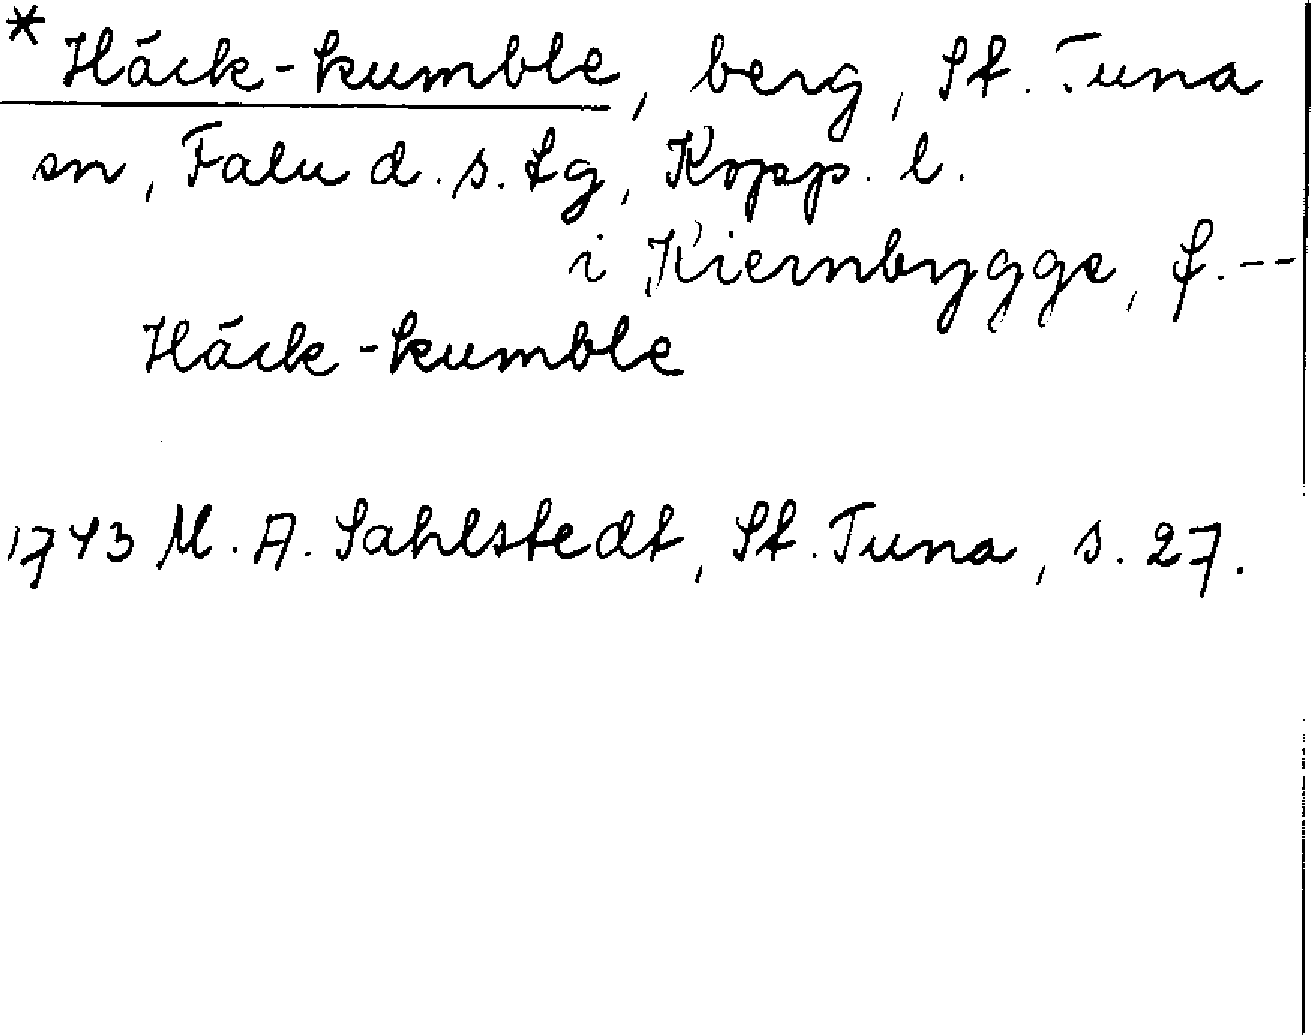 * Häck-kumble, berg, St. Tuna
sn, Falu d. s. tg, Kopp. l.
i Kiernbygge, f. --
Häck-kumble
1743 M. A. Sahlstedt, St. Tuna, s. 27.